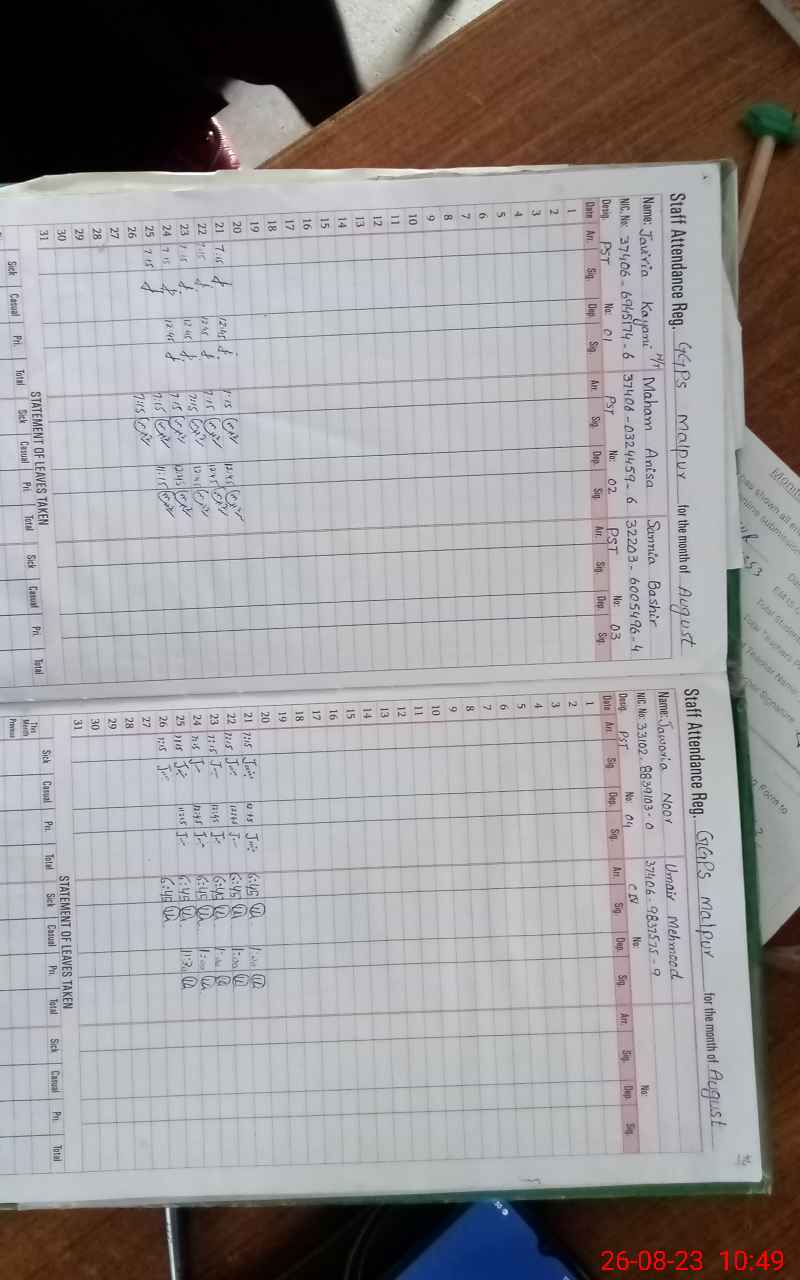 Staff Attendance Reg. GGPS Malpur for the month of August
Name: Javiria Kayani H/T Maham Anisa Sannia Bashir
NIC. No: 37406-6945174-6 37406-0324459-6 32203-6005496-4
Desig. PST No: 01 PST No: 02 PST No: 03
Date Arr. Sig. Dep. Sig. Arr. Sig. Dep. Sig. Arr. Sig. Dep. Sig.
1
2
3
4
5
6
7
8
9
10
11
12
13
14
15
16
17
18
19
20
21 7:15 12:45 7:15 12:45
22 7:15 12:45 7:15 12:45
23 7:15 12:45 7:15 12:45
24 7:15 12:45 7:15 12:45
25 7:15 7:15 11:15
26 7:15
27
28
29
30
31
STATEMENT OF LEAVES TAKEN
Sick Casual Pri. Total Sick Casual Pri. Total Sick Casual Pri. Total
Staff Attendance Reg. GGPS Malpur for the month of August
Name: Jawaria Noor Umair Mehmood
NIC. No: 33102-8839103-0 37406-9837575-9
Desig. PST No: 04 C IV No: No:
Date Arr. Sig. Dep. Sig. Arr. Sig. Dep. Sig. Arr. Sig. Dep. Sig.
1
2
3
4
5
6
7
8
9
10
11
12
13
14
15
16
17
18
19
20
21 7:15 12:45 6:45 1:00
22 7:15 12:45 6:45 1:00
23 7:15 12:45 6:45 1:00
24 7:15 12:45 6:45 1:00
25 7:15 11:15 6:45 11:30
26 7:15 6:45
27
28
29
30
31
STATEMENT OF LEAVES TAKEN
Sick Casual Pri. Total Sick Casual Pri. Total Sick Casual Pri. Total
This Month
Previous
26-08-23 10:49